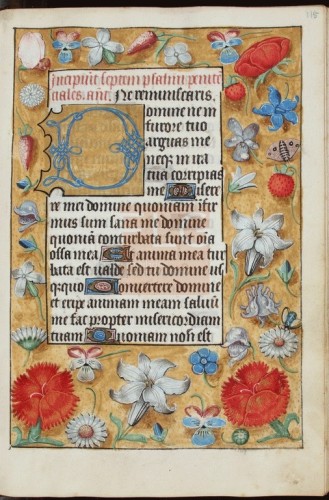 118
Incipiūt septem psalmi penitē
ciales. anā. Ne reminiscaris.
Domine ne in
furore tuo
arguas me
neq; in ira
tua corripias
me Misere
re mei domine quoniam īfir
mus sum sana me domine
quoniā conturbata sunt oīa
ossa mea Et anima mea tur
bata est valde sed tu domine us
q;quo Conuertere domine
et eripe animam meam saluū
me fac propter misericordiam
tuam Quoniam non est